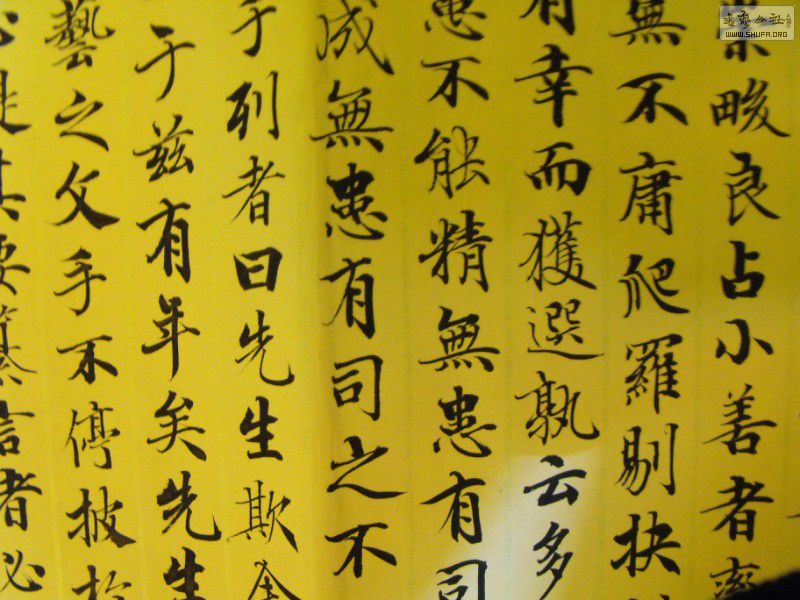 崇畯良占小善者率
無不庸爬羅剔抉
有幸而獲選孰云多
患不能精無患有司
成無患有司之不
于列者曰先生欺余
于兹有年矣先生
藝之文手不停披於
必提其要纂言者必
書藝公社
WWW.SHUFA.ORG